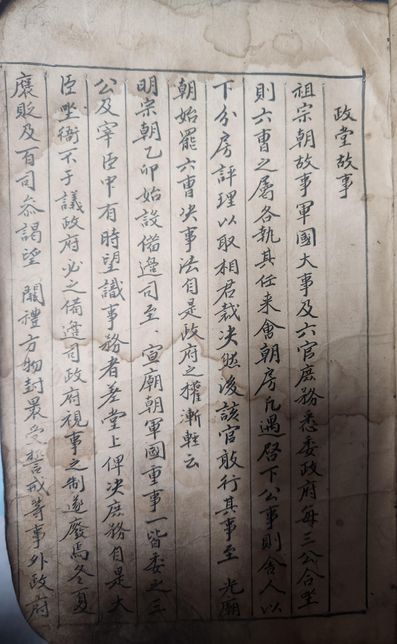 政堂故事
祖宗朝故事軍國大事及六官庶務悉委政府每三公合坐
則六曹之屬各執其任来會朝房凡遇啓下公事則舍人以
下分房評理以取相君裁决然後該官敢行其事至 光廟
朝始罷六曹决事法自是政府之權漸輕云
明宗朝乙卯始設備邊司至 宣廟朝軍國重事一皆委之三
公及宰臣中有時望識事務者差堂上俾决庶務自是大
臣坐衙不于議政府必之備邊司政府視事之制遂廢焉冬夏
褒貶及百司叅謁望 闕禮方物封裹受誓戒等事外政府